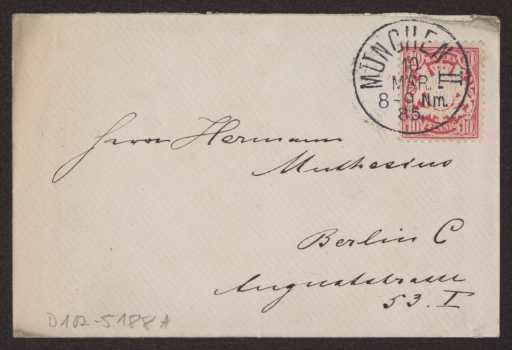 MÜNCHEN II
10
MAR.
8-9 Nm.
85
10 10
Herrn Hermann
Muthesius
Berlin C
Auguststrasse
53. I
D102-5188A